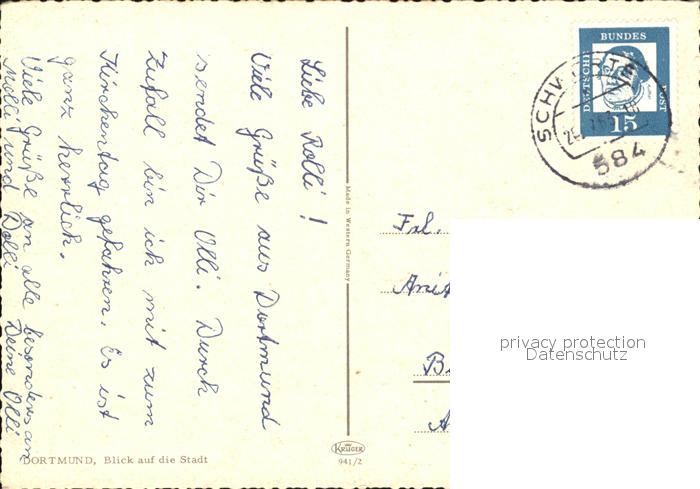 Liebe Rolli!
Viele Grüße aus Dortmund
sendet Dir Olli. Durch
Zufall bin ich mit zum
Kirchentag gefahren. Es ist
ganz herrlich.
Viele Grüße an alle besonders an
Molli und Dolli Deine Olli
DORTMUND, Blick auf die Stadt
Made in Western Germany
KRÜGER
941/2
DEUTSCHE BUNDES POST
15
SCHWERTE
584
Frl.
privacy protection
Datenschutz